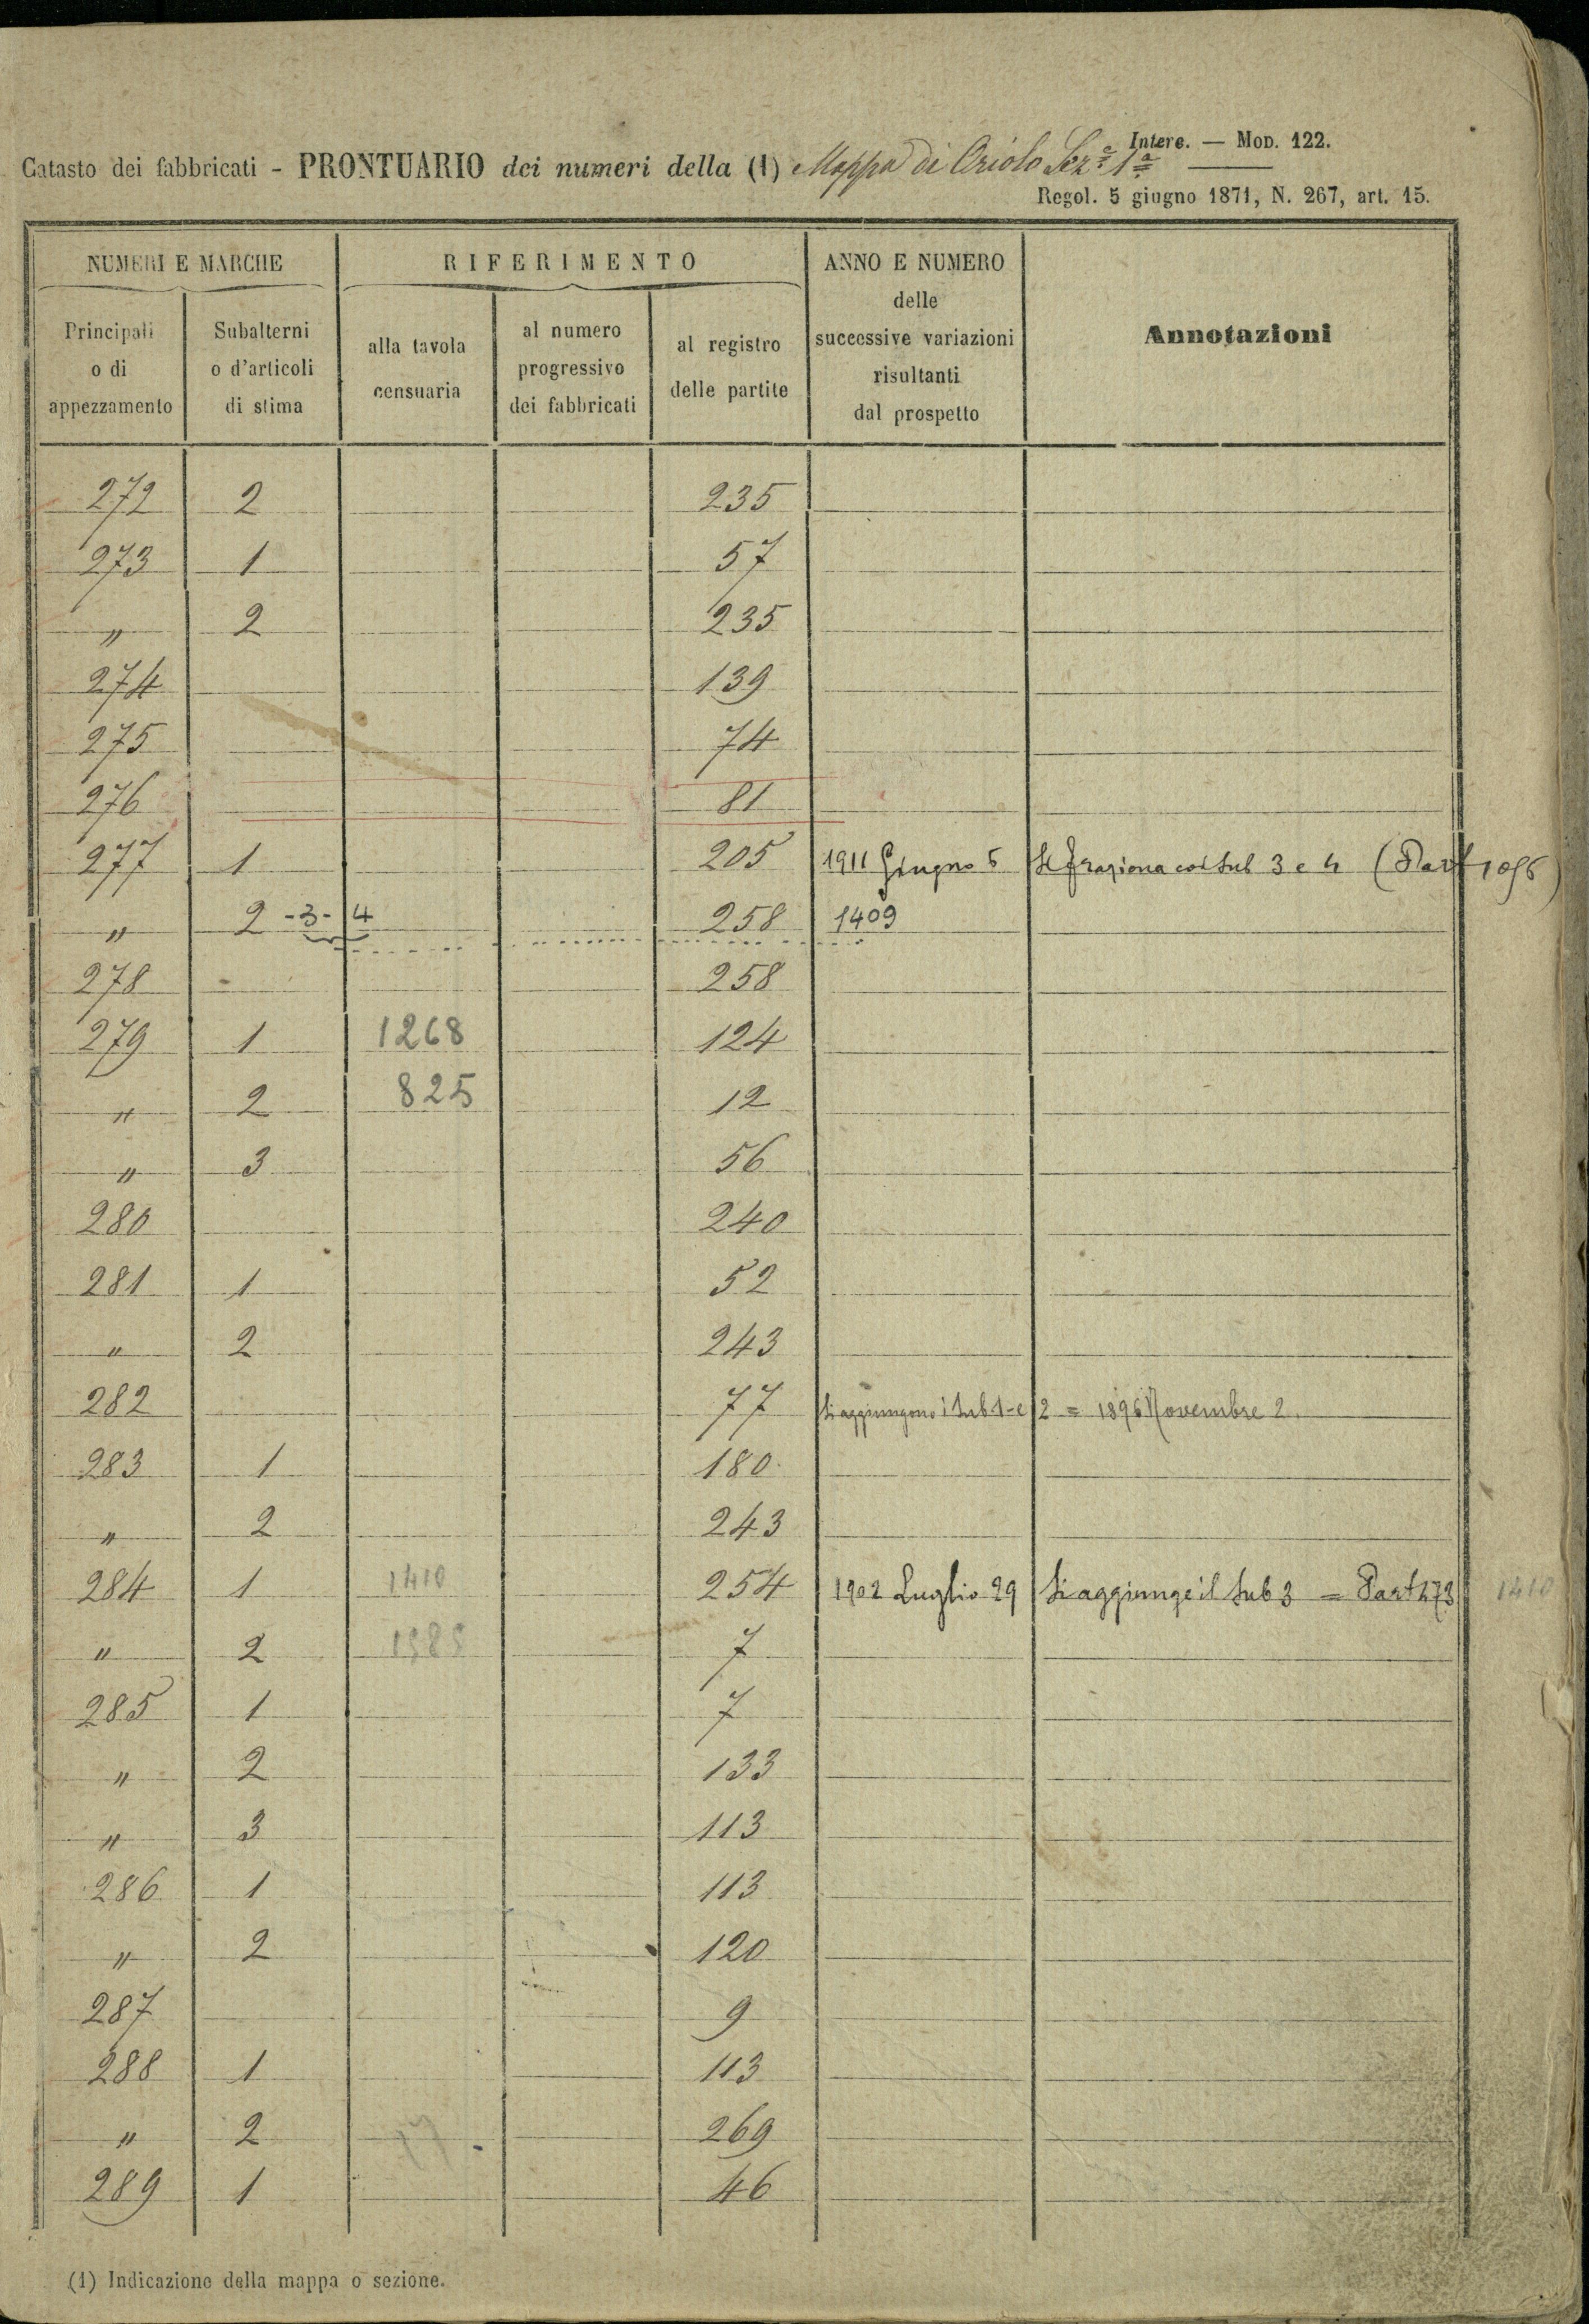 Intere. — Mod. 122.
Catasto dei fabbricati - PRONTUARIO dei numeri della (1) Mappa di Oriolo Sez.ª 1ª
Regol. 5 giugno 1871, N. 267, art. 15.
NUMERI E MARCHE
Principali o di appezzamento
Subalterni o d'articoli di stima
RIFERIMENTO
alla tavola censuaria
al numero progressivo dei fabbricati
al registro delle partite
ANNO E NUMERO delle successive variazioni risultanti dal prospetto
Annotazioni
272 2 235
273 1 57
" 2 235
274 139
275 74
276 81
277 1 205 1911 Giugno 5 Si fraziona coi Sub 3 e 4 (Part
" 2 -3-4 258 1409
278 - 258
279 1 1268 124
" 2 825 12
" 3 56
280 240
281 1 52
" 2 243
282 77 Si aggiungono i Sub 1-e 2 = 1896 Novembre 2.
283 1 180
" 2 243
284 1 1410 254 1902 Luglio 29 Si aggiunge il Sub 3 = Part 273 1410
" 2 7
285 1 7
" 2 133
" 3 113
286 1 113
" 2 120
287 9
288 1 113
" 2 269
289 1 46
(1) Indicazione della mappa o sezione.